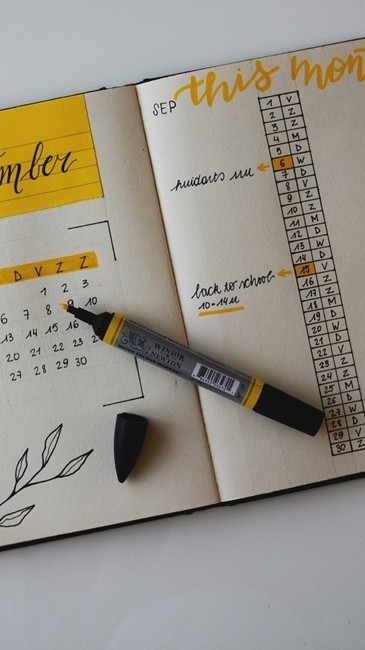 mber
D V Z Z
1 2 3
6 7 8 9 10
13 14 15 16
20 21 22 23 2
27 28 29 30
SEP this mon
1 V
2 Z
3 Z
4 M
5 D
6 W
7 D
8 V
9 Z
10 Z
11 M
12 D
13 W
14 D
15 V
16 Z
17 Z
18 M
19 D
20 W
21 D
22 V
23 Z
24 Z
25 M
26 D
27 W
28 D
29 V
30 Z
huidarts
back to school
10-14u
WINSOR
& NEWTON